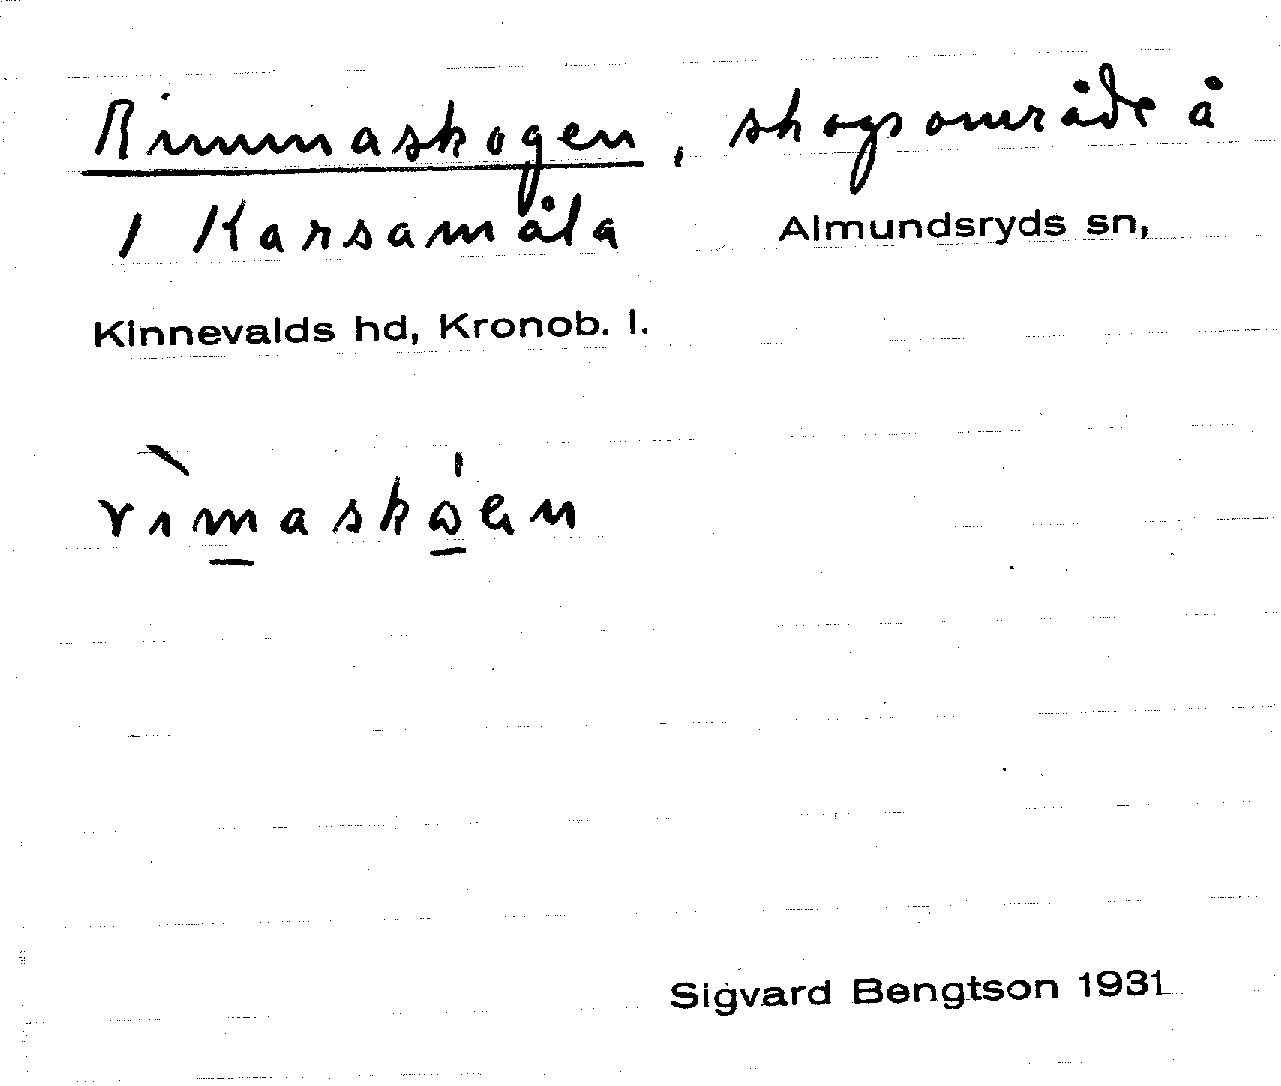 Rimmaskogen, skogsområde å
1 Karsamåla Almundsryds sn,
Kinnevalds hd, Kronob. l.
rìmaskå̍en
Sigvard Bengtson 1931